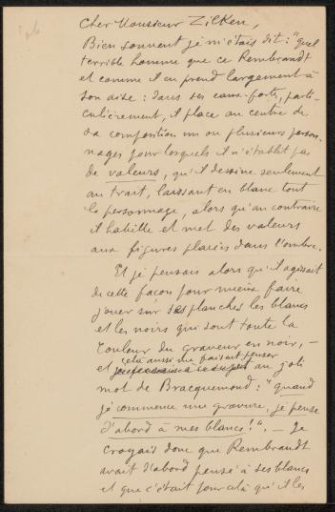 Cher Monsieur Zilken,
Bien souvent je m'étais dit : "quel
terrible homme que ce Rembrandt
et comme il en prend largement à
son aise : dans ses eaux-fortes, parti-
culièrement, il place au centre de
sa composition un ou plusieurs person-
nages pour lesquels il n'établit pas
de valeurs, qu'il dessine seulement
au trait, laissant en blanc tout
le personnage, alors qu'au contraire
il habille et met des valeurs
aux figures placées dans l'ombre.
Et je pensais alors qu'il agissait
de cette façon pour mieux faire
jouer sur ses planches les blancs
et les noirs qui sont toute la
couleur du graveur en noir, –
cela aussi me faisait penser
et au joli
mot de Bracquemond : "quand
je commence une gravure, je pense
d'abord à mes blancs !". – Je
croyais donc que Rembrandt
avait d'abord pensé à ses blancs
et que c'était pour cela qu'il les